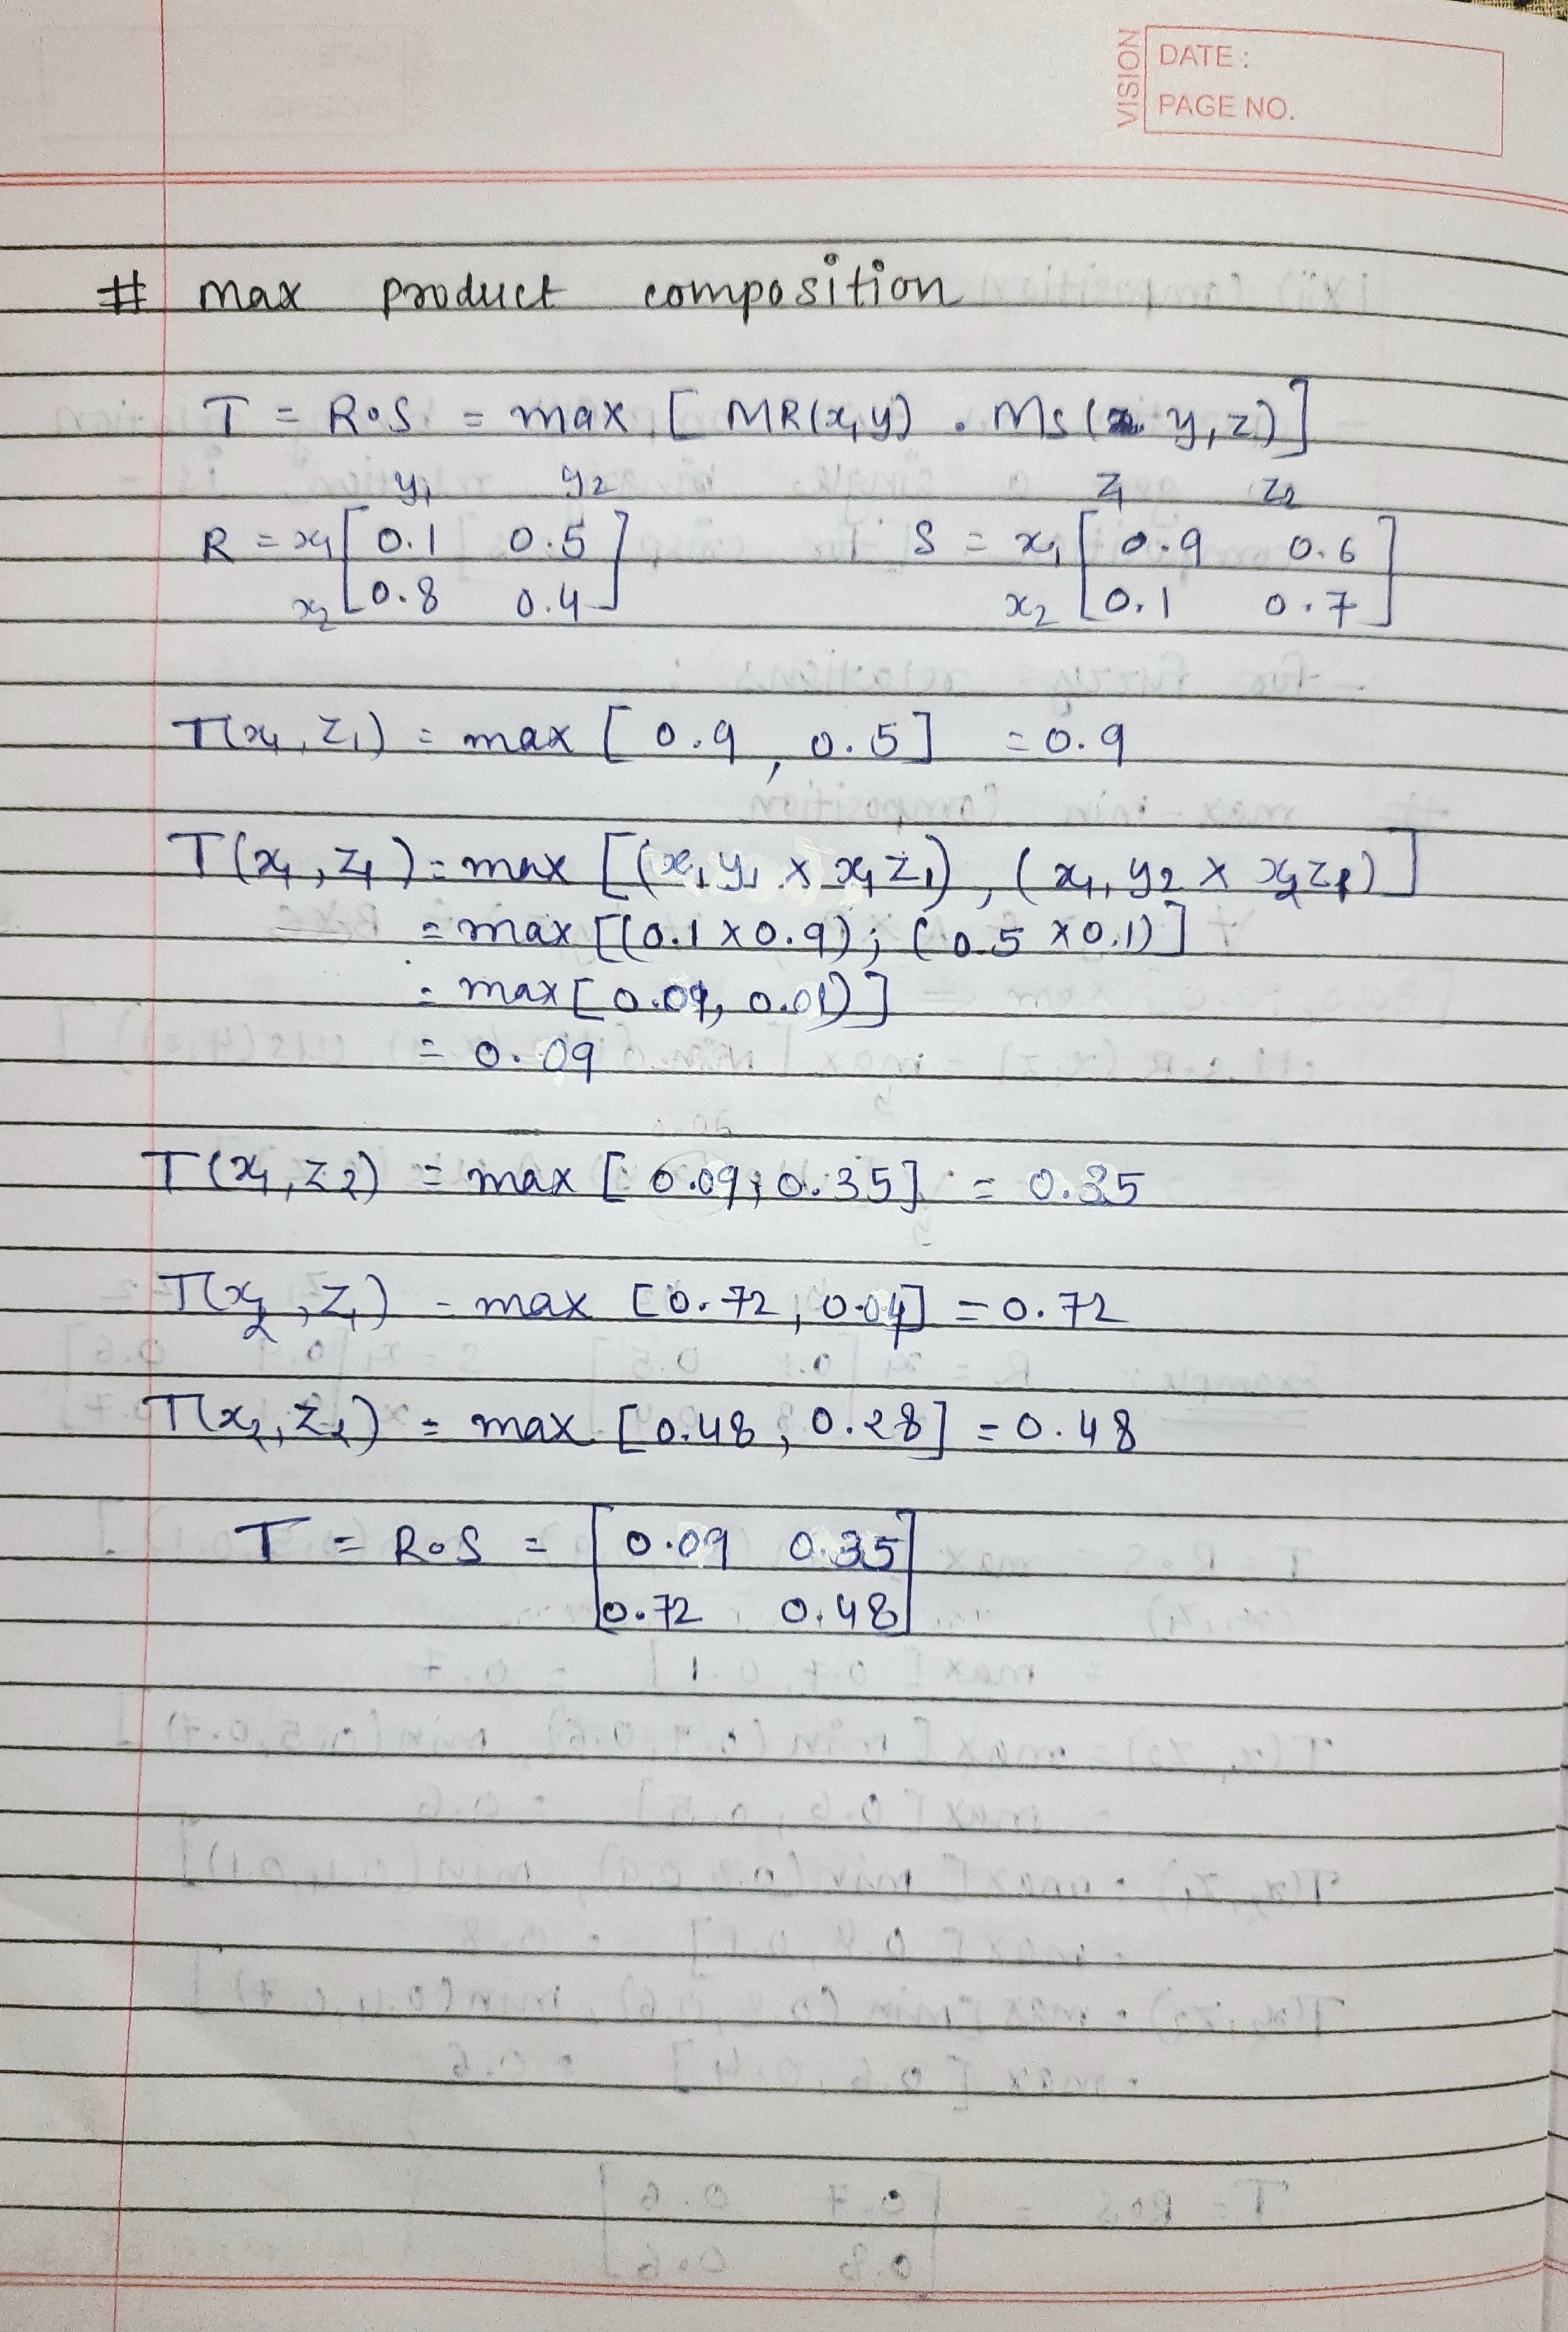 VISION
DATE :
PAGE NO.
# max product composition
T = R∘S = max [ MR(x,y) . Ms ( y,z)]
y1 y2 z1 z2
R = x1 [ 0.1 0.5 ] S = x1 [ 0.9 0.6 ]
x2 [ 0.8 0.4 ] x2 [ 0.1 0.7 ]
T(x1, z1) = max [ 0.9 , 0.5] = 0.9
T(x1, z1) = max [(x1 y1 × x1 z1), (x1, y2 × x2 z1)]
= max [(0.1 × 0.9); (0.5 × 0.1)]
= max [0.09, 0.01)]
= 0.09
T(x1, z2) = max [ 0.09; 0.35] = 0.35
T(x2, z1) = max [0.72, 0.04] = 0.72
T(x2, z2) = max [0.48, 0.28] = 0.48
T = R∘S = [ 0.09 0.35 ]
[ 0.72 0.48 ]